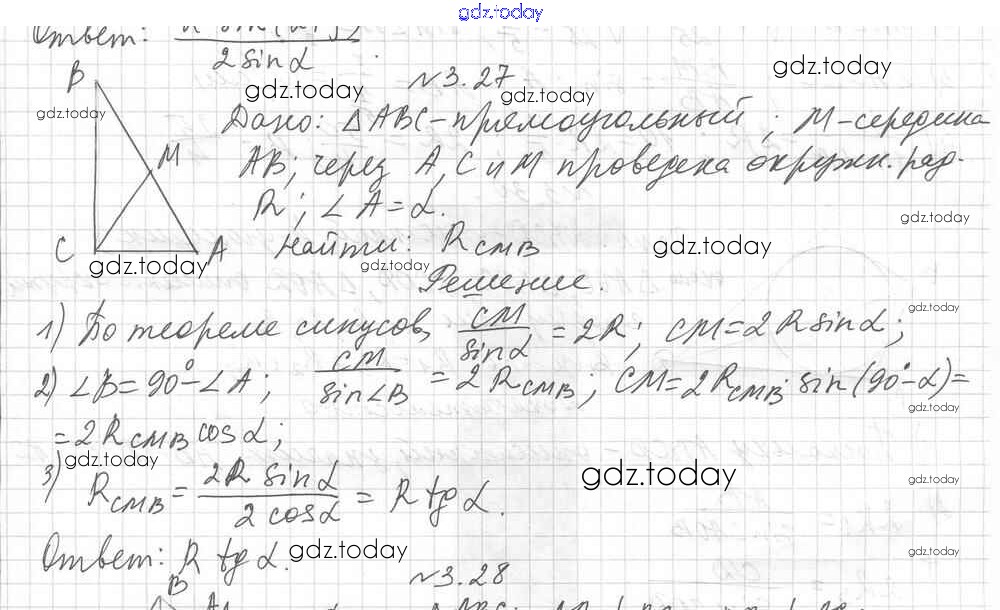 gdz.today
Ответ:
2 sin α
№3.27
gdz.today
gdz.today
gdz.today
gdz.today
B
M
C
A
Дано: △ABC-прямоугольный; M-середина
AB; через A, C и M проведена окружн. рад.
R; ∠A=α.
gdz.today
Найти: R_CMB
gdz.today
gdz.today
gdz.today
Решение.
gdz.today
1) По теореме синусов, CM/sin α = 2R; CM=2R sin α;
2) ∠B=90°-∠A; CM/sin∠B = 2R_CMB; CM=2R_CMB·sin(90°-α)=
gdz.today
=2R_CMB cos α;
gdz.today
gdz.today
gdz.today
3) R_CMB = 2R sin α/2 cos α = R tg α.
Ответ: R tg α.
gdz.today
gdz.today
№3.28
B